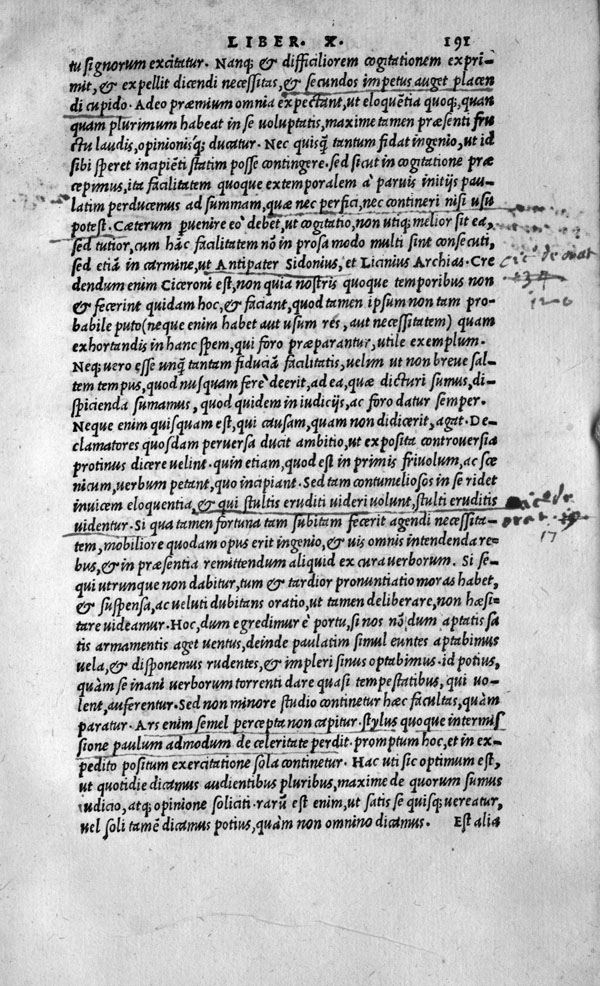 LIBER. X. 191
tu signorum excitatur. Nanq; & difficiliorem cogitationem expri-
mit, & expellit dicendi necessitas, & secundos impetus auget placen
di cupido. Adeo præmium omnia expectant, ut eloquẽtia quoq;, quan
quam plurimum habeat in se voluptatis, maxime tamen præsenti fru
ctu laudis, opinionisq; ducatur. Nec quisq̃ tantum fidat ingenio, ut id
sibi speret incipiẽti statim posse contingere. sed sicut in cogitatione præ
cepimus, ita facilitatem quoque extemporalem à paruis initijs pau-
latim perducemus ad summam, quæ nec perfici, nec contineri nisi usu
potest. Cæterum puenire eò debet, ut cogitatio, non utiq; melior sit ea,
sed tutior, cum hãc facilitatem nõ in prosa modo multi sint consecuti,
sed etiã in carmine, ut Antipater Sidonius, et Licinius Archias. Cre
Cic. de orat
dendum enim Ciceroni est, non quia nostris quoque temporibus non
& fecerint quidam hoc, & faciant, quod tamen ipsum non tam pro-
babile puto (neque enim habet aut usum res, aut necessitatem) quam
exhortandis in hanc spem, qui foro præparantur, utile exemplum.
Neq; uero esse unq̃ tantam fiduciã facilitatis, uelim ut non breue sal-
tem tempus, quod nusquam ferè deerit, ad ea, quæ dicturi sumus, di-
spicienda sumamus, quod quidem in iudicijs, ac foro datur semper.
Neque enim quisquam est, qui causam, quam non didicerit, agat. De-
clamatores quosdam peruersa ducit ambitio, ut exposita controuersia
protinus dicere uelint. quin etiam, quod est in primis friuolum, ac scæ
nicum, uerbum petant, quo incipiant. Sed tam contumeliosos in se ridet
inuicem eloquentia, & qui stultis eruditi uideri uolunt, stulti eruditis
uidentur. Si qua tamen fortuna tam subitam fecerit agendi necessita-
17
tem, mobiliore quodam opus erit ingenio, & uis omnis intendenda re-
bus, & in præsentia remittendum aliquid ex cura uerborum. Si se-
qui utrunque non dabitur, tum & tardior pronuntiatio moras habet,
& suspensa, ac ueluti dubitans oratio, ut tamen deliberare, non hæsi-
tare uideamur. Hoc, dum egredimur è portu, si nos nõ dum aptatis sa
tis armamentis aget uentus, deinde paulatim simul euntes aptabimus
uela, & disponemus rudentes, & impleri sinus optabimus. id potius,
quàm se inani uerborum torrenti dare quasi tempestatibus, qui uo-
lent, auferentur. Sed non minore studio continetur hæc facultas, quàm
paratur. Ars enim semel percepta non capitur. stylus quoque intermis
sione paulum admodum de celeritate perdit. promptum hoc, et in ex-
pedito positum exercitatione sola continetur. Hac uti sic optimum est,
ut quotidie dicamus audientibus pluribus, maxime de quorum simus
iudicio, atq; opinione soliciti. rarũ est enim, ut satis se quisq; uereatur,
uel soli tamẽ dicamus potius, quàm non omnino dicamus. Est alia